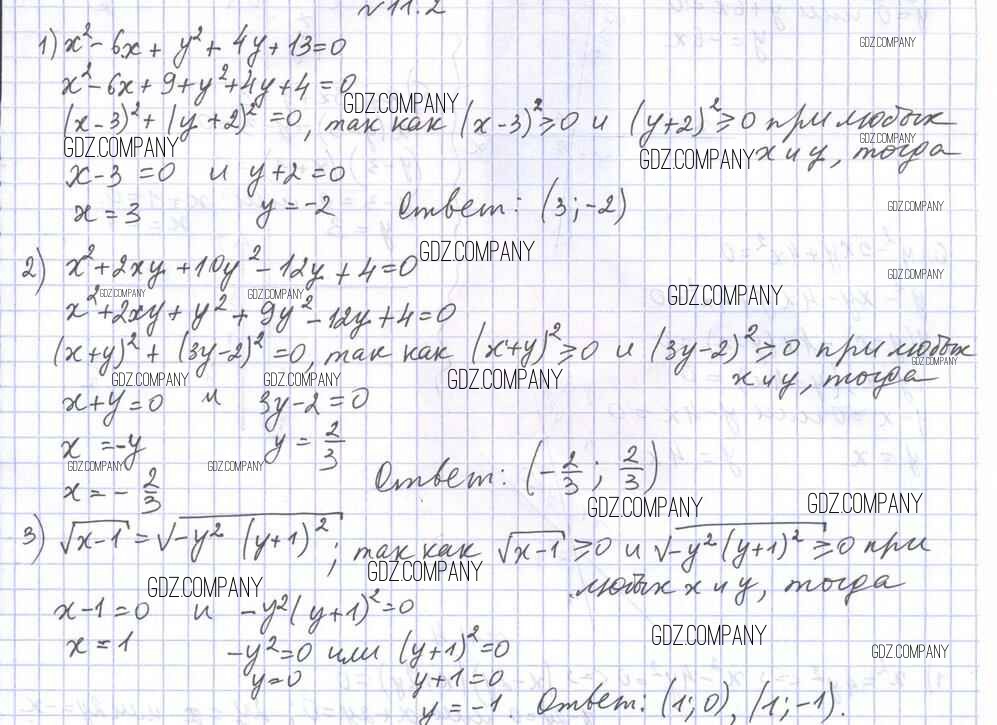 №11.2
1) x² - 6x + y² + 4y + 13 = 0
GDZ.COMPANY
x² - 6x + 9 + y² + 4y + 4 = 0
GDZ.COMPANY
(x-3)² + (y+2)² = 0, так как (x-3)² ≥ 0 и (y+2)² ≥ 0 при любых
GDZ.COMPANY
GDZ.COMPANY GDZ.COMPANY x и y, тогда
x-3 = 0 и y+2 = 0
x = 3 y = -2 Ответ: (3; -2)
GDZ.COMPANY
GDZ.COMPANY
2) x² + 2xy + 10y² - 12y + 4 = 0
GDZ.COMPANY
GDZ.COMPANY GDZ.COMPANY GDZ.COMPANY
x² + 2xy + y² + 9y² - 12y + 4 = 0
(x+y)² + (3y-2)² = 0, так как (x+y)² ≥ 0 и (3y-2)² ≥ 0 при любых
GDZ.COMPANY
GDZ.COMPANY GDZ.COMPANY GDZ.COMPANY x и y, тогда
x+y = 0 и 3y-2 = 0
x = -y y = 2/3
GDZ.COMPANY GDZ.COMPANY
x = - 2/3 Ответ: (-2/3; 2/3)
GDZ.COMPANY GDZ.COMPANY
3) √x-1 = √-y² (y+1)²; так как √x-1 ≥ 0 и √-y² (y+1)² ≥ 0 при
GDZ.COMPANY GDZ.COMPANY любых x и y, тогда
x-1 = 0 и -y² (y+1)² = 0
GDZ.COMPANY
x = 1 -y² = 0 или (y+1)² = 0
GDZ.COMPANY
y = 0 y+1 = 0
y = -1. Ответ: (1; 0), (1; -1).